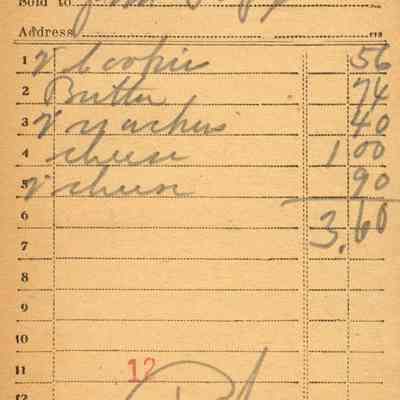 Sold to
Address
1 2 cookies 56
2 Butter 74
3 2 nachus 40
4 cheese 1 00
5 2 cheese 90
6 3.60
7
8
9
10
11 12
12 Pd